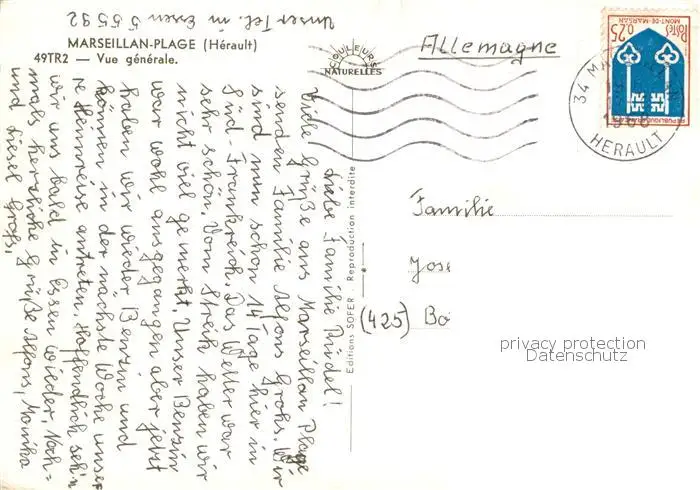 Unser Tel. in Essen 5 55 92
MARSEILLAN-PLAGE (Hérault)
49TR2 — Vue générale.
COULEURS
NATURELLES
Allemagne
POSTES
0,25
MONT-DE-MARSAN
REPUBLIQUE FRANÇAISE
34 MA
HERAULT
Liebe Familie Riedel!
Viele Grüße aus Marseillan Plage
senden Familie Alfons Grohs. Wir
sind nun schon 14 Tage hier in
Süd-Frankreich. Das Wetter war
sehr schön. Vom Streik haben wir
nicht viel gemerkt. Unser Benzin
war wohl ausgegangen aber jetzt
haben wir wieder Benzin und
können in der nächste Woche unser
re Heimreise antreten. Hoffendlich seh'n
wir uns bald in Essen wieder, Noch=
mals herzliche Grüße Alfons, Monika
und Liesel Grohs,
Editions SOFER - Reproduction interdite
Familie
Jose
(425) Bo
privacy protection
Datenschutz